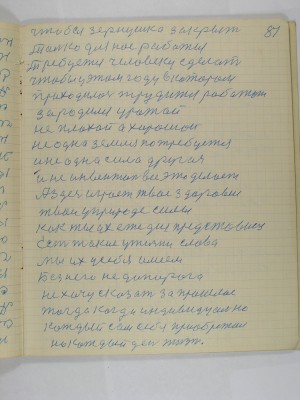 чтобы зернушко завернут
81
Только для нас работы
Требуется человеку сделать
чтобы в этом году в котором
приходился трудится работам
зародили урожай
не плохой а хороший
не одна земля потребуется
и не одна сила другая
и не инвентап все это делает
А здесь играет твое здоровие
твои у природе силы
как ты их еже дня представиш
Есть такие утянки слова
мы их у себя имеем
Без него не до порога
не хочу сказат за прошлое
тогда когда индивидуально
каждый сам себе приобретал
на каждый ден жит.